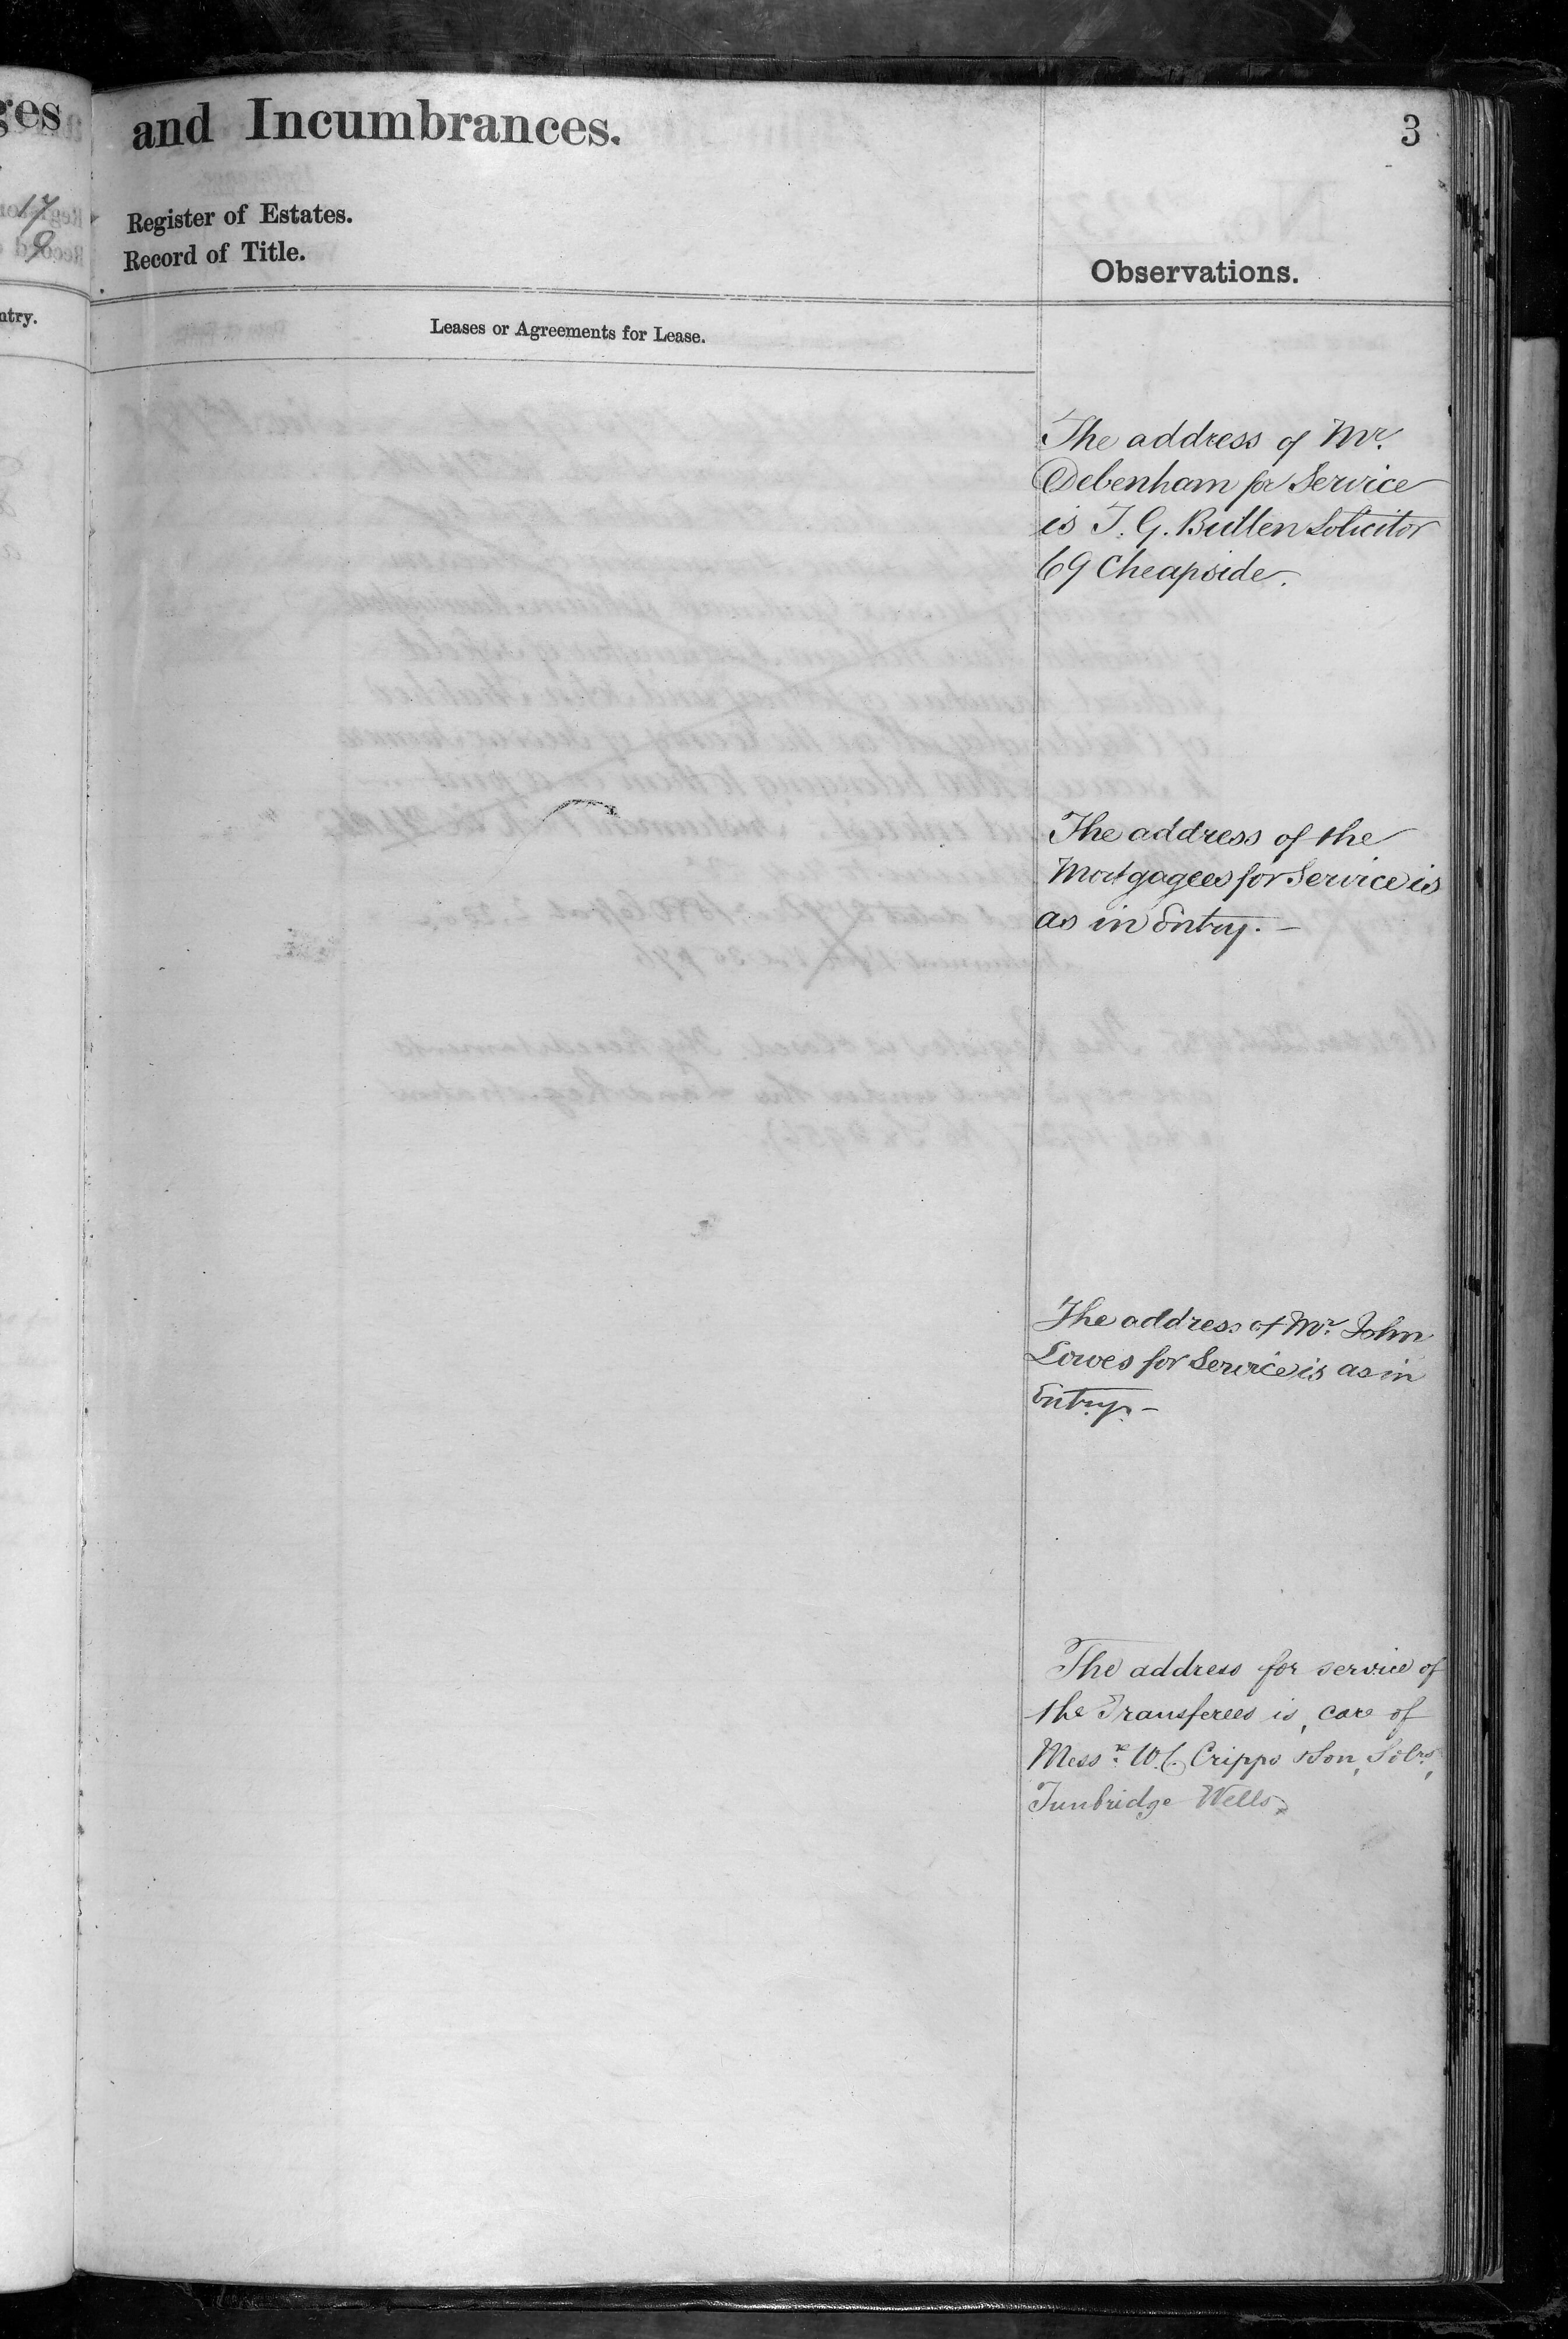 ges
and Incumbrances.
3
17
9
Register of Estates.
Record of Title.
Observations.
ntry.
Leases or Agreements for Lease.
The address of Mr.
Debenham for Service
is T. G. Bullen Solicitor
69 Cheapside.
The address of the
Mortgagees for Service is
as in Entry. -
The address of Mr. John
Lowes for Service is as in
Entry. -
The address for service of
the Transferees is, care of
Messrs. W. C. Cripps & Son, Solrs,
Tunbridge Wells